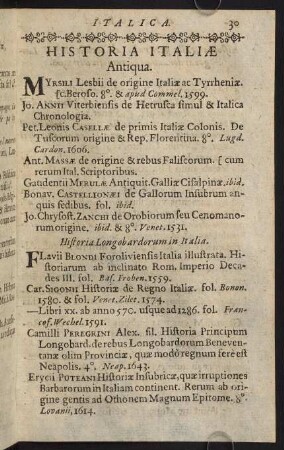 ITALICA. 30
HISTORIA ITALIÆ
Antiqua.
MYRSILI Lesbii de origine Italiæ ac Tyrrheniæ.
f. c. Beroso. 8°. & apud Commel. 1599.
Jo. ANNII Viterbiensis de Hetrusca simul & Italica
Chronologia.
Pet. Leonis CASELLÆ de primis Italiæ Colonis. De
Tuscorum origine & Rep. Florentina. 8°. Lugd.
Cardon. 1606.
Ant. MASSÆ de origine & rebus Faliscorum. [cum
rerum Ital. Scriptoribus.
Gaudentii MERULÆ Antiquit. Galliæ Cisalpinæ. ibid.
Bonav. CASTELLIONÆI de Gallorum Insubrum an-
quis sedibus. fol. ibid.
Jo. Chrysost. ZANCHI de Orobiorum seu Cenomano-
rum origine. ibid. & 8°. Venet. 1531.
Historia Longobardorum in Italia.
FLavii BLONDI Foroliviensis Italia illustrata. Hi-
storiarum ab inclinato Rom. Imperio Deca-
des III. fol. Bas. Froben. 1559.
Car. SIGONII Historiæ de Regno Italiæ. fol. Bonon.
1580. & fol. Venet. Zilet. 1574.
— Libri XX. ab anno 570. usque ad 1286. fol. Fran-
cof. Wechel. 1591.
Camilli PEREGRINI Alex. fil. Historia Principum
Longobard. de rebus Longobardorum Beneven-
tanæ olim Provinciæ, quæ modò regnum ferè est
Neapolis. 4°. Neap. 1643.
Erycii PUTEANI Historiæ Insubricæ, quæ irruptiones
Barbarorum in Italiam continent. Rerum ab ori-
gine gentis ad Othonem Magnum Epitome. 8°.
Lovanii, 1614.